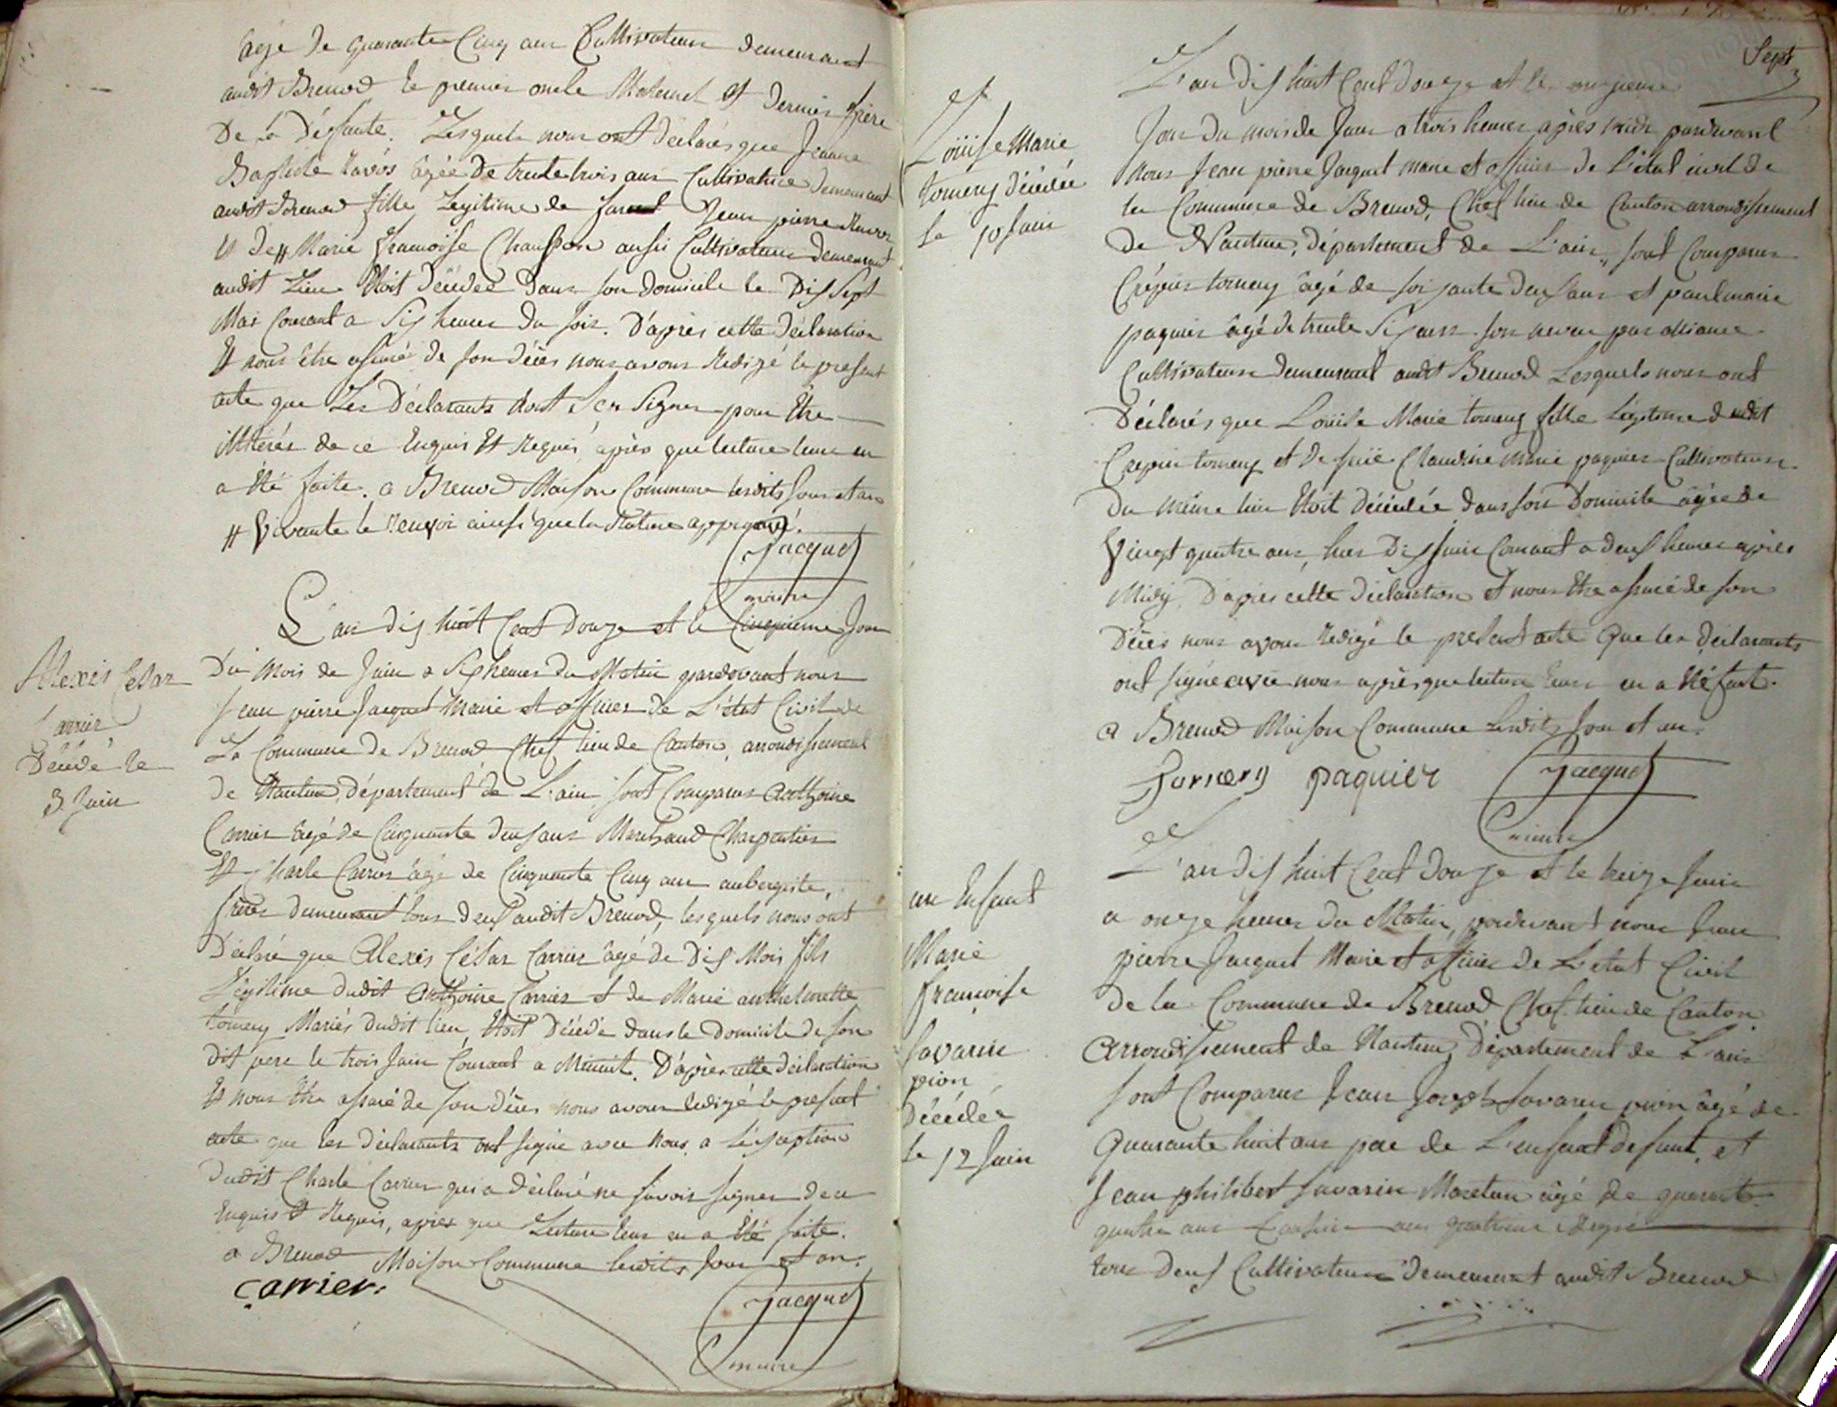 âgé de quarante Cinq ans Cultivateurs demeurant
audit Brenod le premier oncle Maternel et dernier frère
De la Défunte. Lesquels nous ont déclarés que Jeanne
Baptiste Ravos âgée de trente trois ans Cultivatrice demeurant
audit Brenod fille Légitime de Jean pierre Ravos
et de # Marie françoise Chaussons aussi Cultivateurs demeurant
audit Lieu Etoit Décédée dans son domicile le Dix Sept
Mai Courant a Six heures du soir. D'après cette Déclaration
Et nous être assuré de son décès nous avons rédigé le présent
acte que Les Déclarants n'ont Seu Signer pour Etre
illitérés de ce Enquis Et Requis, après que lecture leur en
a été faite. a Brenod Maison Commune lesdits Jour et an
# Vivante le renvoi ainsi que la rature approuvé.
Jacquet
maire
L'an dix huit Cent Douze et le Cinquieme Jour
Du Mois de Juin a Six heures du Matin pardevant nous
Alexis César
Carrier
Décédé le
3 Juin
Jean pierre Jacquet Maire et officier de L'état Civil de
La Commune de Brenod Chef lieu de Canton, arrondissement
de Nantua, département de L'ain, sont Comparus Anthoine
Carrier âgé de Cinquante deux ans Marchand Charpentier
Et Charle Carrier âgé de Cinquante Cinq ans aubergiste,
frères demeurant tous deux audit Brenod, lesquels nous ont
Déclaré que Alexis César Carrier âgé de Dix Mois fils
Légitime dudit Anthoine Carrier et de Marie anthelmette
tomery Mariés dudit lieu, Etoit Décédé dans le domicile de son
dit pere le trois Juin Courant a Minuit. D'après cette déclaration
Et nous être assuré de son décès nous avons rédigé le présent
acte que les déclarants ont signé avec Nous, a L'exception
dudit Charle Carrier qui a déclaré ne savoir signer de ce
Enquis Et Requis, après que Lecture leur en a Eté faite.
a Brenod Maison Commune lesdits Jour et an.
Carrier.
Jacquet
maire
Sept
Louise Marie
tomery décédée
le 10 Juin
L'an dix huit Cent Douze et le onzieme
Jour du mois de Juin a trois heures après midi pardevant
Nous Jean pierre Jacquet maire et officier de L'état civil de
la Commune de Brenod, Chef lieu de Canton arrondissement
de Nantua, département de L'ain, sont Comparus
Crépin tomery âgé de soixante deux ans et
paquier âgé de trente Six ans son neveu par alliance
Cultivateurs demeurant audit Brenod Lesquels nous ont
Déclarés que Louise Marie tomery fille Légitime dudit
Crepin tomery et de feüe Claudine Marie paquier Cultivateurs
du même lieu Etoit décédée dans son Domicile âgée de
Vingt quatre ans, hier Dix Juin Courant a deux heures après
Midy, D'après cette déclaration et nous être assuré de son
Décès nous avons rédigé le présent acte que les déclarants
ont signé avec nous après que lecture leur en a été faite.
a Brenod Maison Commune lesdits Jour et an.
tomery paquier Jacquet
maire
un Enfant
Marie
françoise
Savarin
pion
Décédée
le 12 Juin
L'an dix huit Cent Douze et le treize Juin
a onze heures du Matin, pardevant nous Jean
pierre Jacquet Maire et officier de L'état Civil
de la Commune de Brenod Chef lieu de Canton
Arrondissement de Nantua, Département de L'ain
sont Comparus Jean Joseph Savarin pion âgé de
Quarante huit ans pere de L'enfant défunt, et
Jean philibert Savarin Moretan âgé de quarante
quatre ans Cousin au quatrieme dégré
tous deux Cultivateurs demeurant audit Brenod